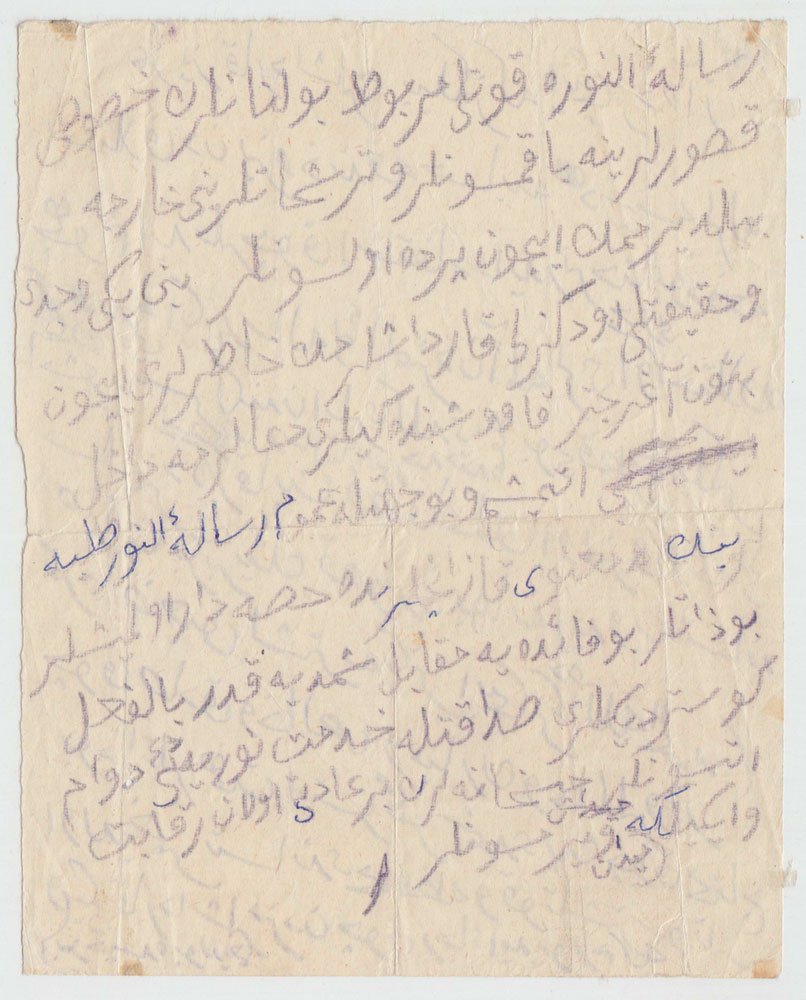 رسالهٔ النوره قوتلی مربوط بولنانلرك خصوصی
قصورلرینه باقمسونلر و ترشحاتلرینی خارجه
بیلدیرمهمك ایچون پرده اولسونلر بنی یكی وجدی
و حقیقتلی اوده‌كی قارداشلرمك خاطرلری ایچون
بتون آغرجزا قاووشنده‌كیلری دعالرمه داخل
ایتمشم و بوجهتله عموم رسالهٔ النور طلبه
لرینك معنوی قازانجلرینده حصه‌دار اولمشلر
بو ذاتلر بو فائده‌یه مقابل شمدیه قدر بالفعل
كوستردیكلری صداقتله خدمت نوریه‌یی دوام
اتسونلر حبسخانه‌لرك بر عادتی اولان رقابت
و ایكیلكه میدان ویرمسونلر